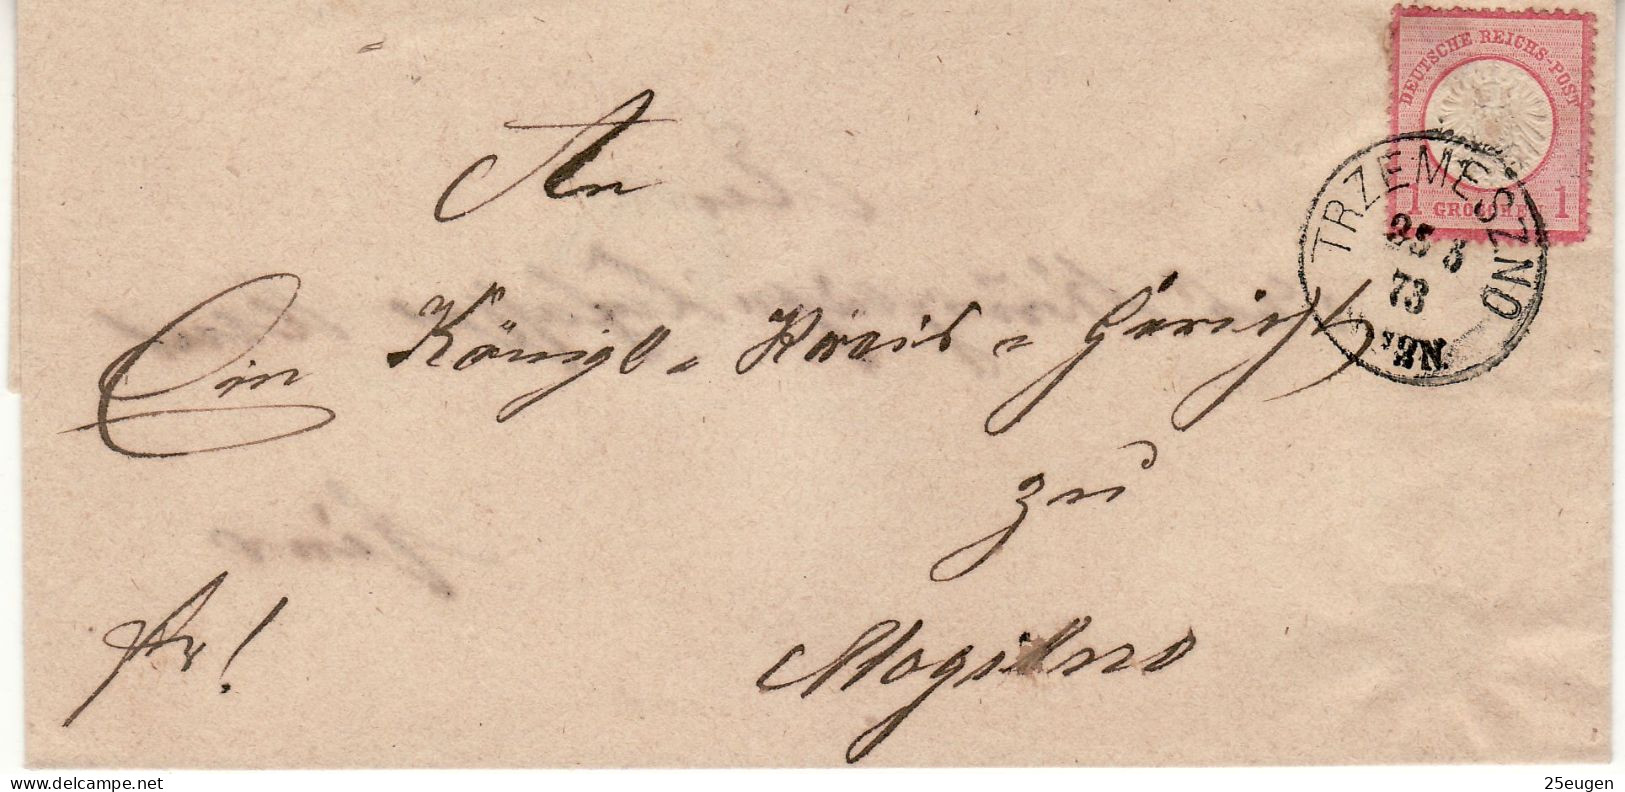 DEUTSCHE REICHS-POST
1 GROSCHEN 1
TRZEMESZNO
25 3
73
An
Ein Königl. Kreis-Gericht
zu
fr!
Mogilno
delcampe.net
25eugen